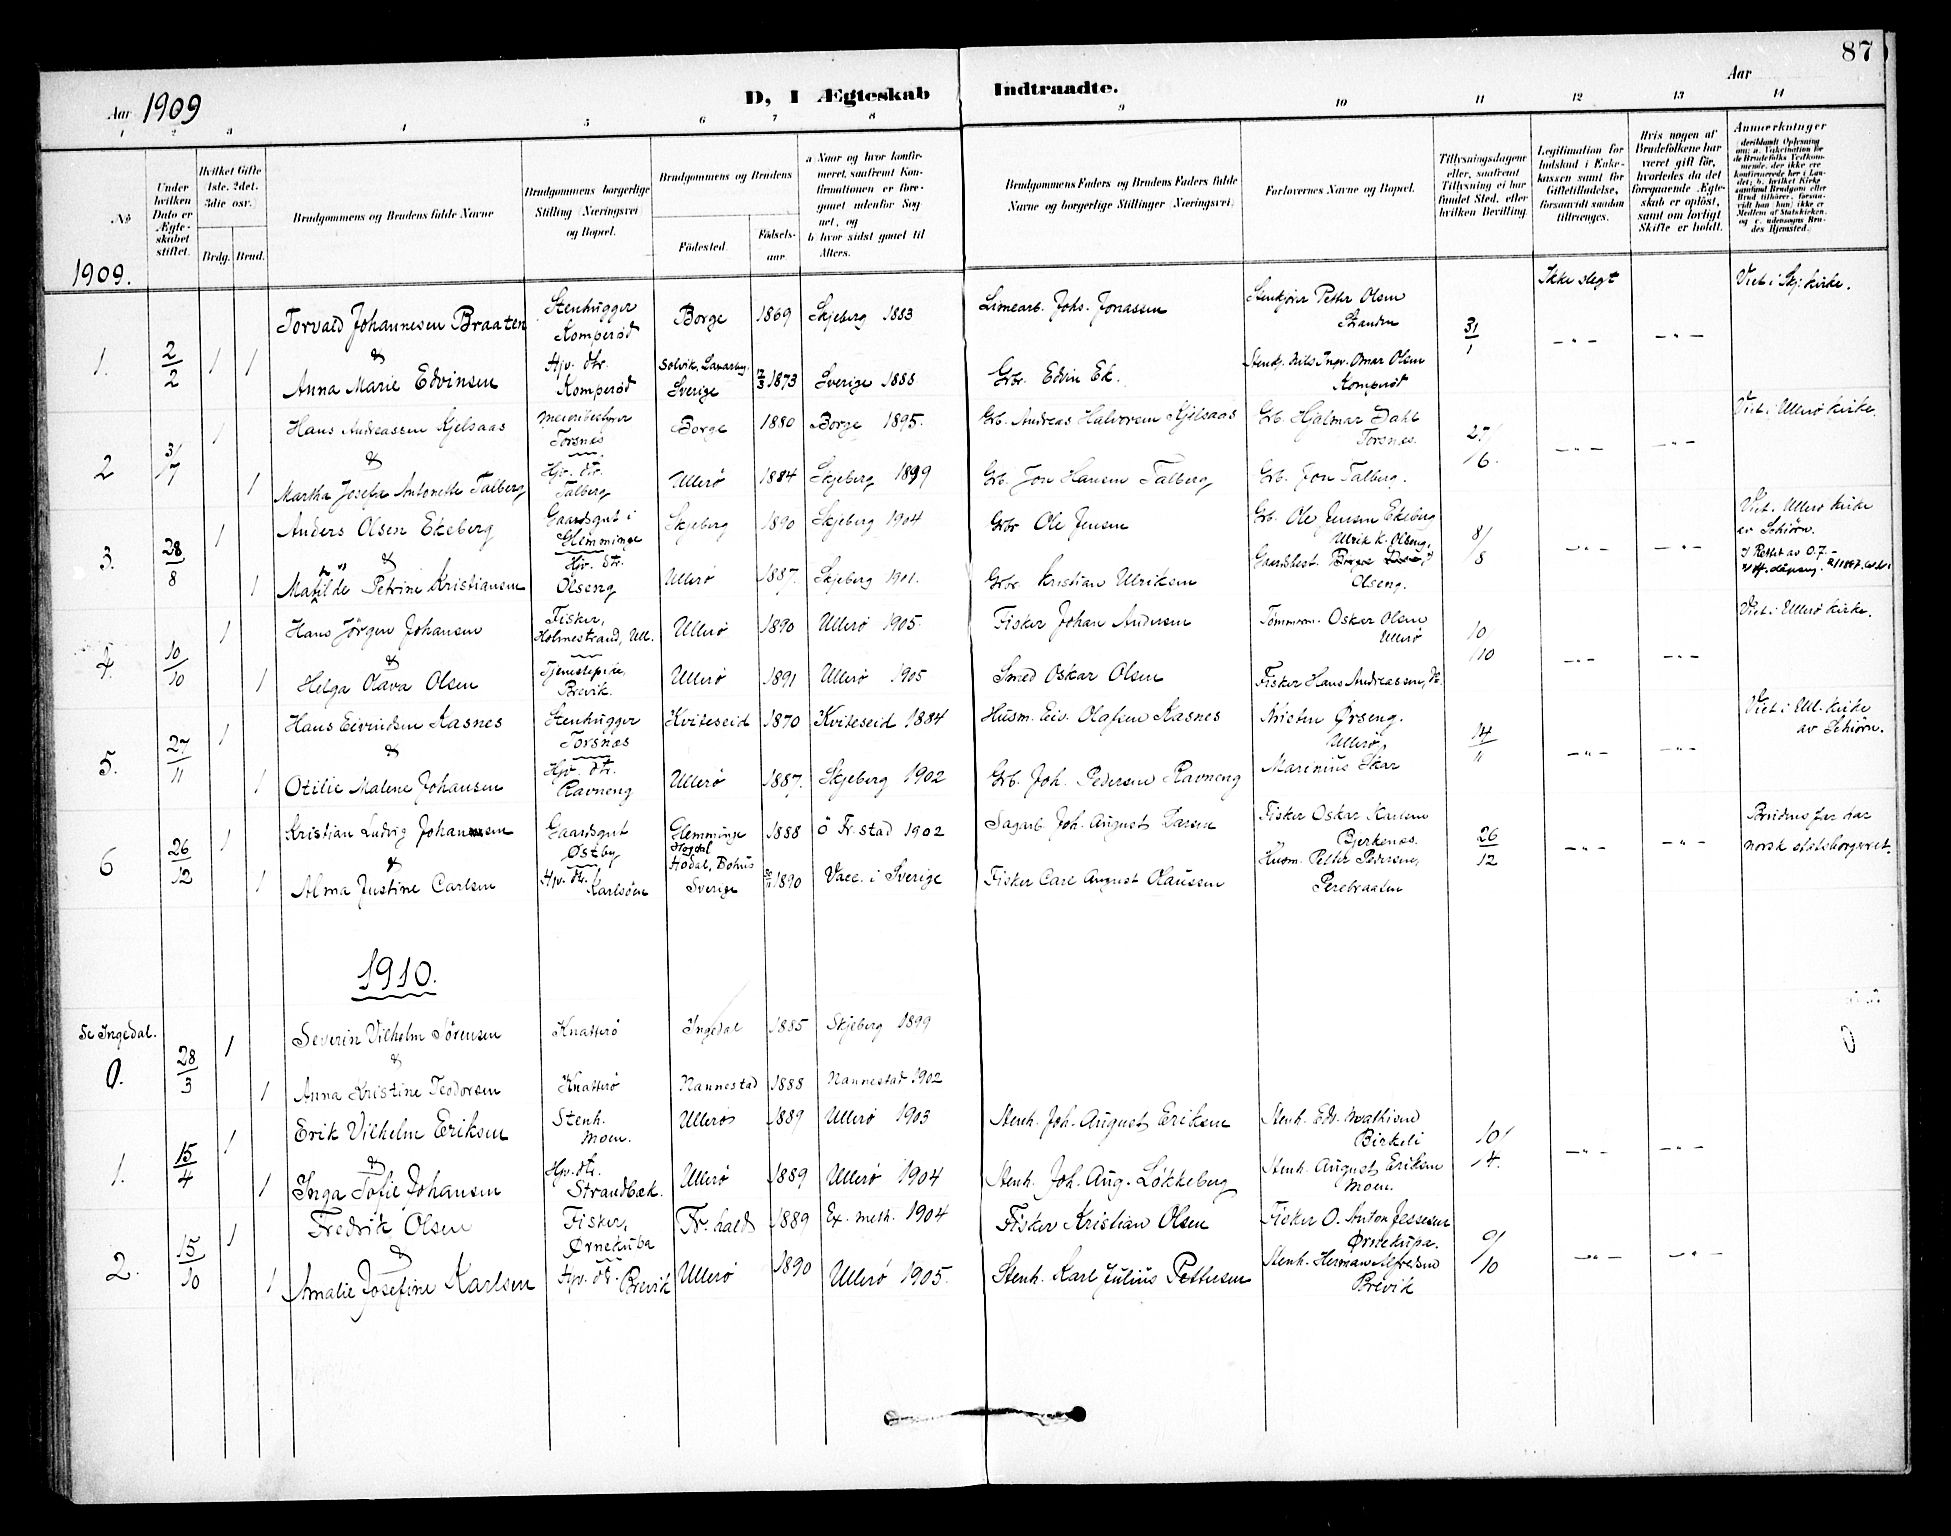 87
Aar 1909
D, I Ægteskab Indtraadte.
Aar
1 2 3 4 5 6 7 8 9 10 11 12 13 14
No
Under hvilken Dato er Ægteskabet stiftet.
Hvilket Gifte 1ste, 2det, 3die osv.)
Brdg. Brud.
Brudgommens og Brudens fulde Navne
Brudgommens borgerlige Stilling (Næringsvei) og Bopæl.
Brudgommens og Brudens
Fødested.
Fødselsaar
a Naar og hvor konfirmeret, saafremt Konfirmationen er foregaaet udenfor Sognet, og
b hvor sidst gaaet til Alters.
Brudgommens Faders og Brudens Faders fulde Navne og borgerlige Stillinger (Næringsvei)
Forlovernes Navne og Bopæl.
Tillysningsdagene eller, saafremt Tillysning ei har fundet Sted, efter hvilken Bevilling.
Legitimation for Indskud i Enkekassen samt for Giftetilladelse, forsaavidt saadan tiltrænges.
Hvis nogen af Brudefolkene har været gift før, hvorledes da det foregaaende Ægteskab er opløst, samt om lovligt Skifte er holdt.
Anmerkninger
1909.
1. 2/2 1 1
Torvald Johannesen Braaten Stenhugger Komperød Borge 1869 Skjeberg 1883 Joh⁠s. Jonassen Petter Olsen 31/1 Ikke slegt Viet i Skj. kirke.
&
Anna Marie Edvinsen Hjv. dtr. Komperød Sverige 12/3 1873 Sverige 1888 Grbr. Edvin Ek. Omar Olsen Komperød
2 31/7 1
Hans Andreassen Kjelsaas Torsnes Borge 1880 Borge 1895. Grb. Andreas Halvorsen Kjelsaas Grb. Hjalmar Dahl Torsnes. 27/6. Viet i Ullerø kirke.
&
1 Martha Josefa Antonette Talberg Hjv. dtr. Talberg Ullerø 1884 Skjeberg 1899 Grb. Jon Hansen Talberg Grb. Jon Talberg.
3. 28/8 1
Anders Olsen Ekeberg Gaardsgut i Glemminge Skjeberg 1890 Skjeberg 1904 Grbr Ole Jensen Grb. Ole Jensen Ekeberg 8/8 Viet i Ullerø kirke av Schiørn.
&
1 Matilde Petrine Kristiansen Hjv. dtr. Olseng Ullerø 1887. Skjeberg 1901. Grbr Kristian Ulriksen Ulrik K. Olseng, Olseng.
4. 10/10 1
Hans Jörgen Johansen Fisker, Holmestrand, Ull. Ullerø 1890 Ullerø 1905. Fisker Johan Andersen Tømmerm. Oskar Olsen Ullerø 10/10 Viet i Ullerø kirke.
&
1 Helga Olava Olsen Tjenestepike, Brevik. Ullerø 1891 Ullerø 1905 Smed Oskar Olsen Fisker Hans Andreassen,
5. 27/11 1
Hans Eivindsen Kasnes Stenhugger Torsnæs Kviteseid 1870 Kviteseid 1884 Husm. Eiv. Olafsen Kasnes Kristen Ørseng. Ullerø, 14/11 Viet i Ull. kirke av Schiørn.
&
1 Otilie Malene Johansen Hjv. dtr. Ravneng Ullerø 1887. Skjeberg 1902 Grb. Joh. Pedersen Ravneng Marinius Skar
6 26/12 1
Kristian Ludvig Johansen Gaardsgut Østby Glemminge 1888 Ö Fr.stad 1902 Sagarb. Joh. August Larsen Fisker Oskar Karlsen Bjerkenæs. 26/12 Brudens far har norsk statsborgerret.
&
1 Alma Justine Carlsen Hjv. dtr. Karlsöen Hogdal Hodal, Bohus Sverige 1890 Vacc. i Sverige Fisker Carl August Olaussen Husm. Petter Pedersen, Perebraaten
1910.
Se Ingedal.
0. 28/3 1
Severin Vilhelm Sörensen Knatterö Ingedal 1885 Skjeberg 1899 0
&
1 Anna Kristine Teodorsen Knatterö Nannestad 1888 Nannestad 1902
1. 15/4 1
Erik Vilhelm Eriksen Stenh. Moen. Ullerø 1889 Ullerø 1903 Stenh. Joh. August Eriksen Stenh. Edv. Mathisen Birkeli 10/4.
&
1 Inga Sofie Johansen Hjv. dtr. Strandbæk. Ullerø 1889 Ullerø 1904 Stenh. Joh. Aug. Løkkeberg Stenh. August Eriksen Moen.
2. 15/10 1
Fredrik Olsen Fisker, Ørnekupa Fr.hald 1889 Ex. meth. 1904 Fisker Kristian Olsen Fisker O. Anton Jessesen Ørnekupa. 9/10
&
1 Amalie Josefine Karlsen Hjv. dt. Brevik Ullerø 1890 Ullerø 1905. Stenh. Karl Julius Pettersen Stenh. Herman Alfredsen Brevik